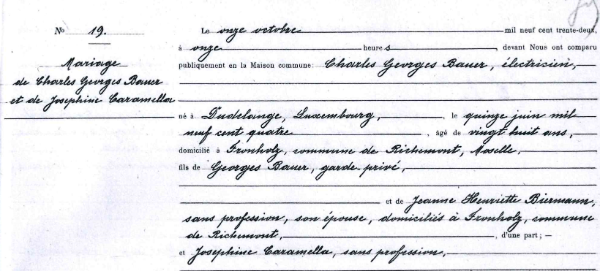 N° 19.
Mariage
de Charles Georges Bauer
et de Josephine Caramella
Le onze octobre mil neuf cent trente-deux,
à onze heures, devant Nous ont comparu
publiquement en la Maison commune: Charles Georges Bauer, électricien,
né à Dudelange, Luxembourg, le quinze juin mil
neuf cent quatre, âgé de vingt huit ans,
domicilié à Gronholz, commune de Richemont, Moselle,
fils de Georges Bauer, garde privé,
et de Jeanne Henriette Biermann,
sans profession, son épouse, domiciliés à Gronholz, commune
de Richemont, d'une part; —
et Josephine Caramella, sans profession,